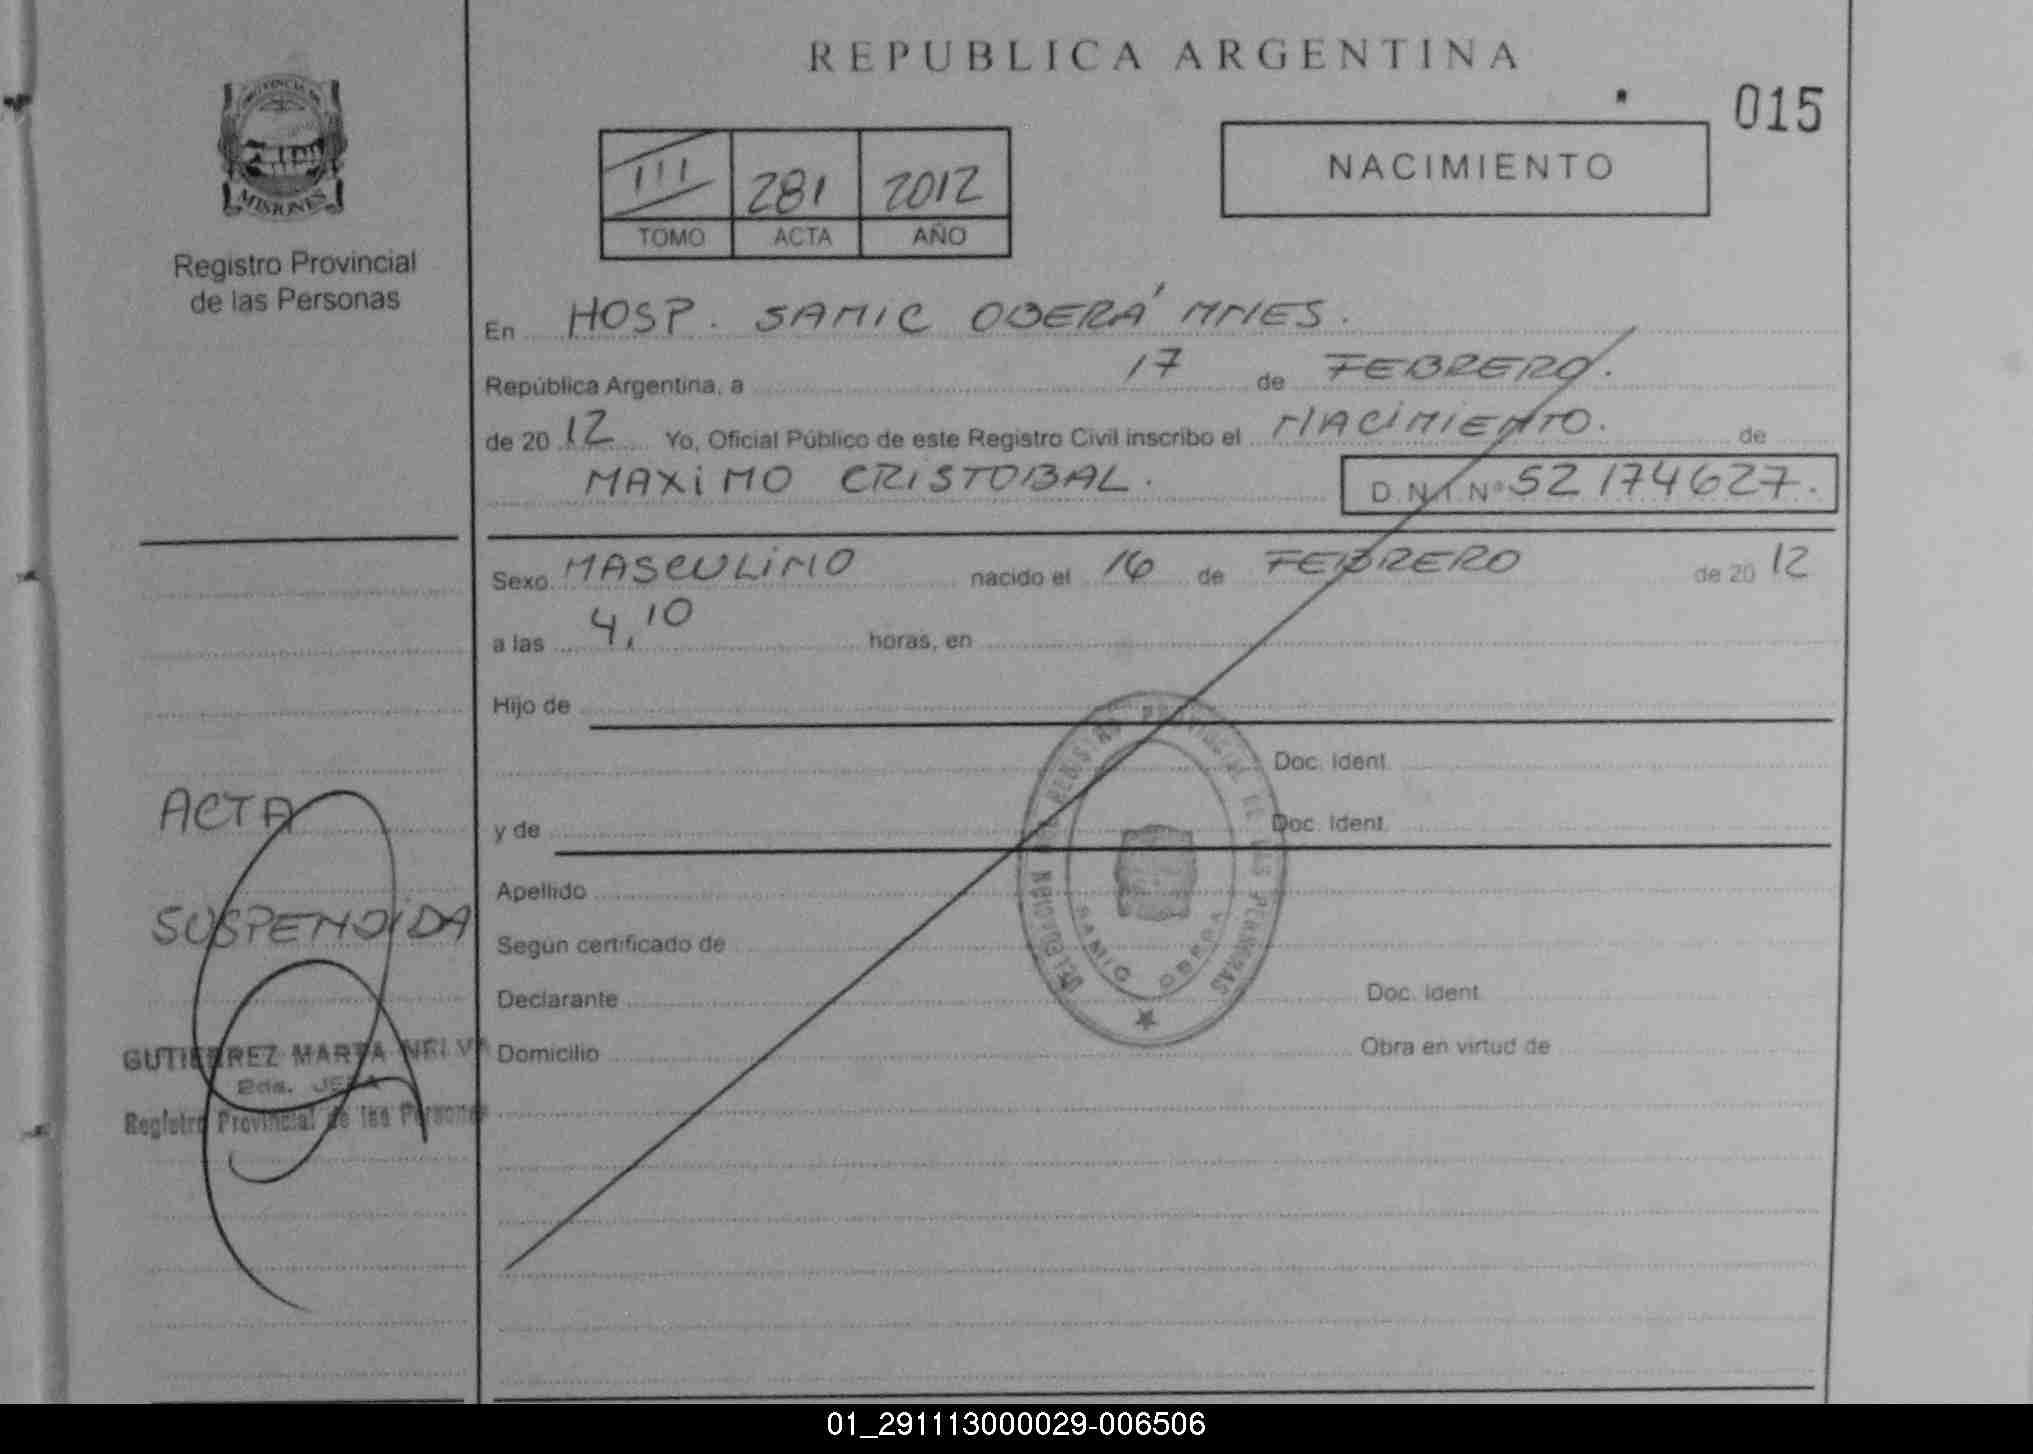 REPUBLICA ARGENTINA
015
PROVINCIA DE
MISIONES
Registro Provincial
de las Personas
III 281 2012
TOMO ACTA AÑO
NACIMIENTO
En HOSP. SAMIC OBERÁ MNES.
República Argentina, a 17 de FEBRERO.
de 20 12 Yo, Oficial Público de este Registro Civil inscribo el NACIMIENTO. de
MAXIMO CRISTOBAL. D.N.I Nº 52174627.
Sexo MASCULINO nacido el 16 de FEBRERO de 20 12
a las 4,10 horas, en
Hijo de
Doc. Ident.
y de Doc. Ident.
Apellido
Según certificado de
Declarante Doc. Ident.
Domicilio Obra en virtud de
REGISTRO PROVINCIAL DE LAS PERSONAS
SAMIC OBERA
ACTA
SUSPENDIDA
GUTIERREZ MARTA NELVA
2da. JEFA
Registro Provincial de las Personas
01_291113000029-006506